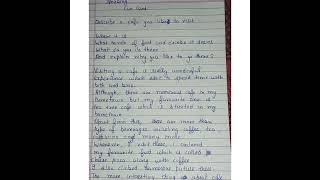 Speaking
Cue Card
Describe a cafe you like to visit
Where it is
What kinds of food and drinks it serves
What do you do there
And explain why you like to go there?
Visiting a cafe is really wonderful
experience
Although, there are numerous cafe in my
hometown but my favourite one is
tea time cafe which is situated in my
hometown
Apart from this, there are more than
type of beverages including coffee tea
and many more
Whenever, I visit there, I ordered
my favourite food which is called
pizza along with coffee
I also clicked pictures there
The more interesting thing about cafe